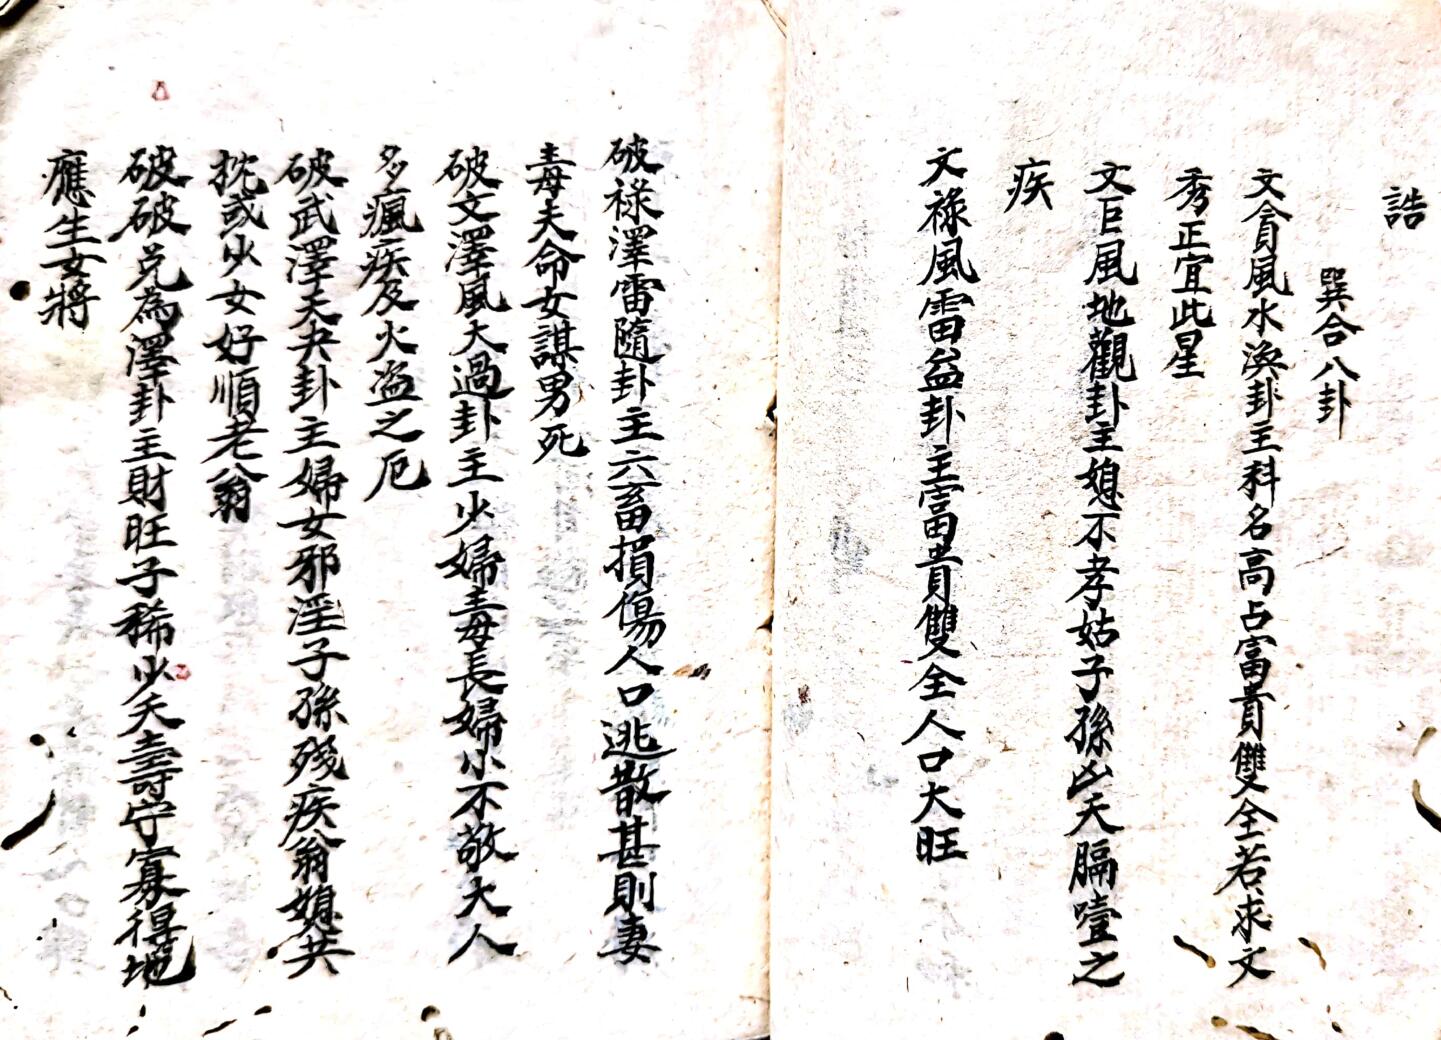 誥
巽合八卦
文貪風水渙卦主科名高占富貴雙全若求文
秀正宜此星
文巨風地觀卦主媳不孝姑子孫凶夭膈噎之
疾
文祿風雷益卦主富貴雙全人口大旺
破祿澤雷隨卦主六畜損傷人口逃散甚則妻
毒夫命女謀男死
破文澤風大過卦主少婦毒長婦小不敬大人
多瘋疾及火盜之厄
破武澤天夬卦主婦女邪淫子孫殘疾翁媳共
枕或少女好順老翁
破破兌為澤卦主財旺子稀少夭壽守寡得地
應生女將